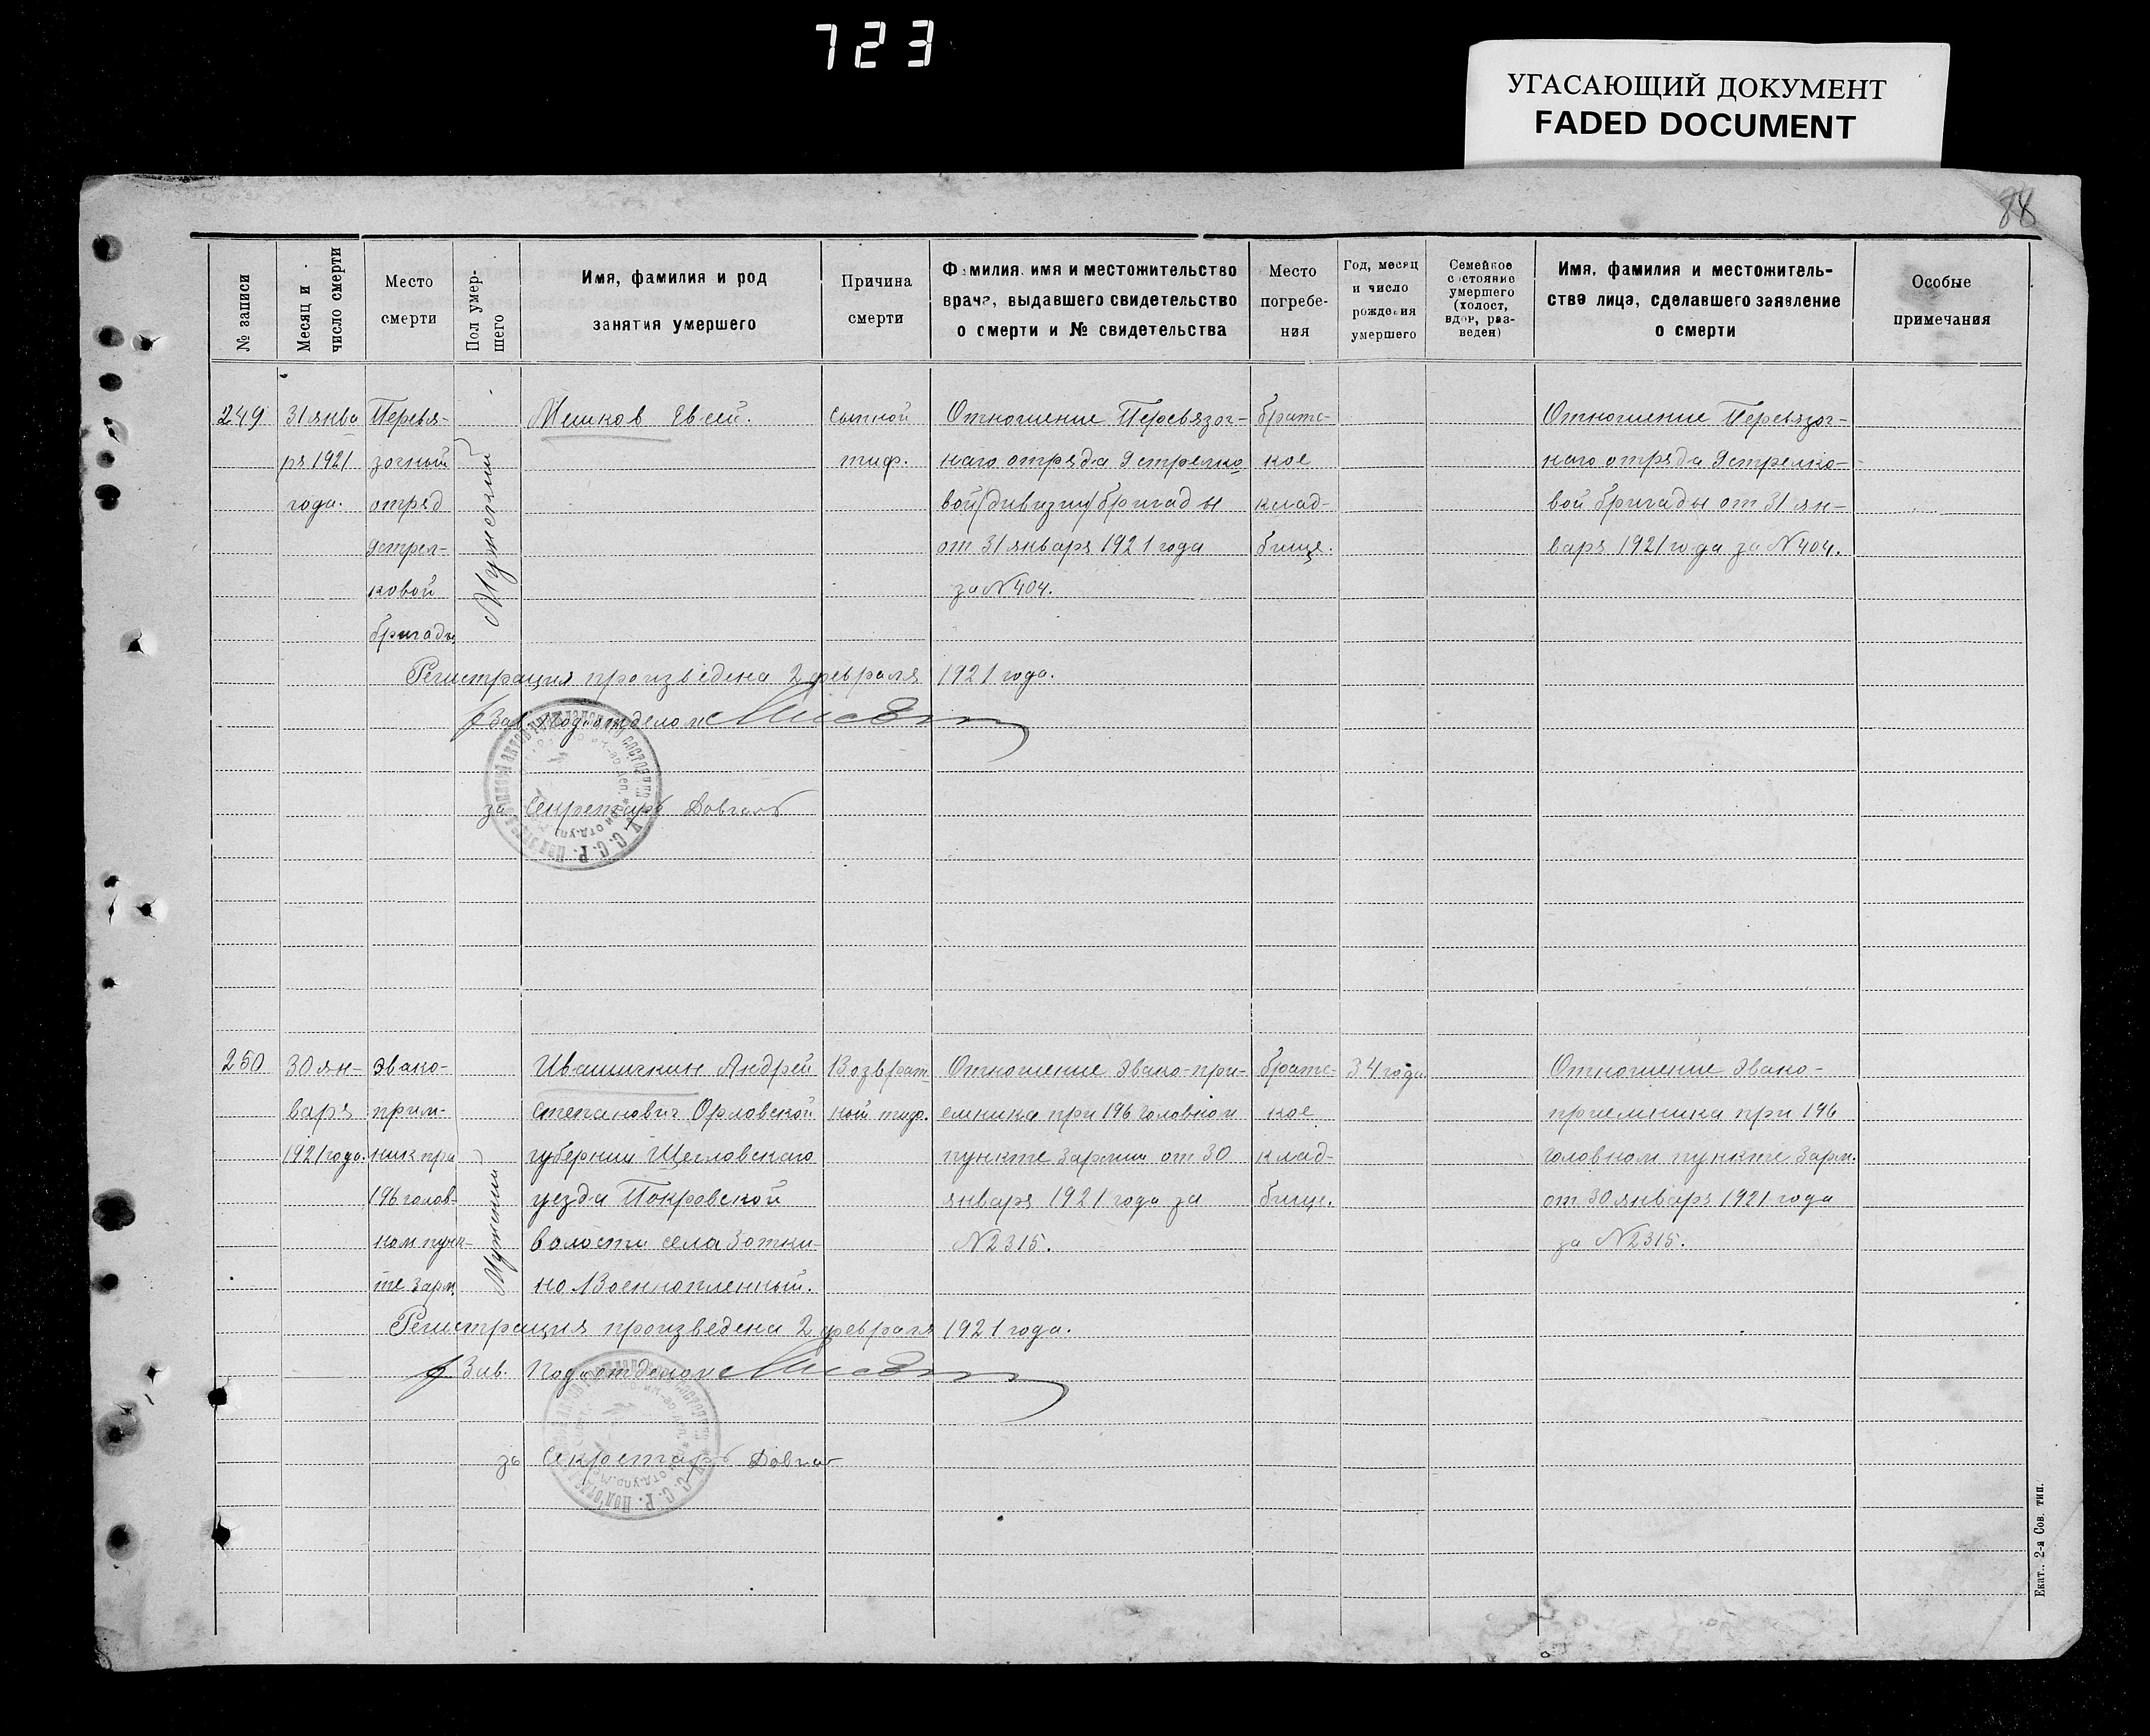 723
УГАСАЮЩИЙ ДОКУМЕНТ
FADED DOCUMENT
88
№ записи
Месяц и число смерти
Место смерти
Пол умершего
Имя, фамилия и род занятия умершего
Причина смерти
Фамилия, имя и местожительство врача, выдавшего свидетельство о смерти и № свидетельства
Место погребения
Год, месяц и число рождения умершего
Семейное состояние умершего (холост, вдов, разведен)
Имя, фамилия и местожительство лица, сделавшего заявление о смерти
Особые примечания
249
31 янва
ря 1921
года.
Перевя-
зочный
отряд
9 стрел-
ковой
бригады
Мужской
Мешков Евсей.
Сыпной
тиф.
Отношение Перевязоч-
наго отряда 9 стрелко
вой (дивизии) бригады
от 31 января 1921 года
за N 404.
братс-
кое
клад-
бище.
Отношение Перевязоч-
наго отряда 9 стрелко-
вой бригады от 31 ян-
варя 1921 года за N 404.
Регистрация произведена 2 февраля 1921 года.
Зав. Подотделом
за Секретарь Довгаль
250
30 ян-
варя
1921 года.
Эвако-
прим-
ник при
196 голов-
ном пунк-
те 3 арм.
Мужской
Ивашичкин Андрей
Степанович Орловской
губернии Щегловскаго
уезда Покровской
волости села Зотки-
но Военнопленный.
Возврат-
ной тиф.
Отношение Эвако-при-
емника при 196 Головном
пункте 3 армии от 30
января 1921 года за
N 2315.
братс-
кое
клад-
бище.
34 года
Отношение Эвако-
приемника при 196
Головном пункте 3 арм.
от 30 января 1921 года
за N 2315.
Регистрация произведена 2 февраля 1921 года.
Зав. Подотделом
за Секретарь Довгал
Екат., 2-я Сов. тип.